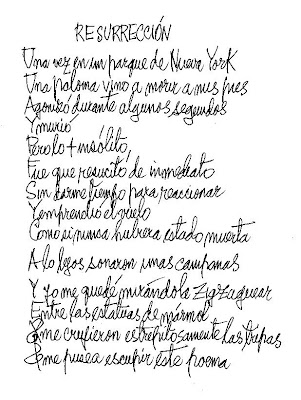 RESURRECCIÓN
Una vez en un parque de Nueva York
Una paloma vino a morir a mis pies
Agonizó durante algunos segundos
Y murió
Pero lo + insólito,
Fue que resucitó de inmediato
Sin darme tiempo para reaccionar
Y emprendió el vuelo
Como si nunca hubiera estado muerta
A lo lejos sonaron unas campanas
Y yo me quedé mirándola zigzaguear
Entre las estatuas de mármol
me crujieron estrepitosamente las tripas
me puse a escupir este poema